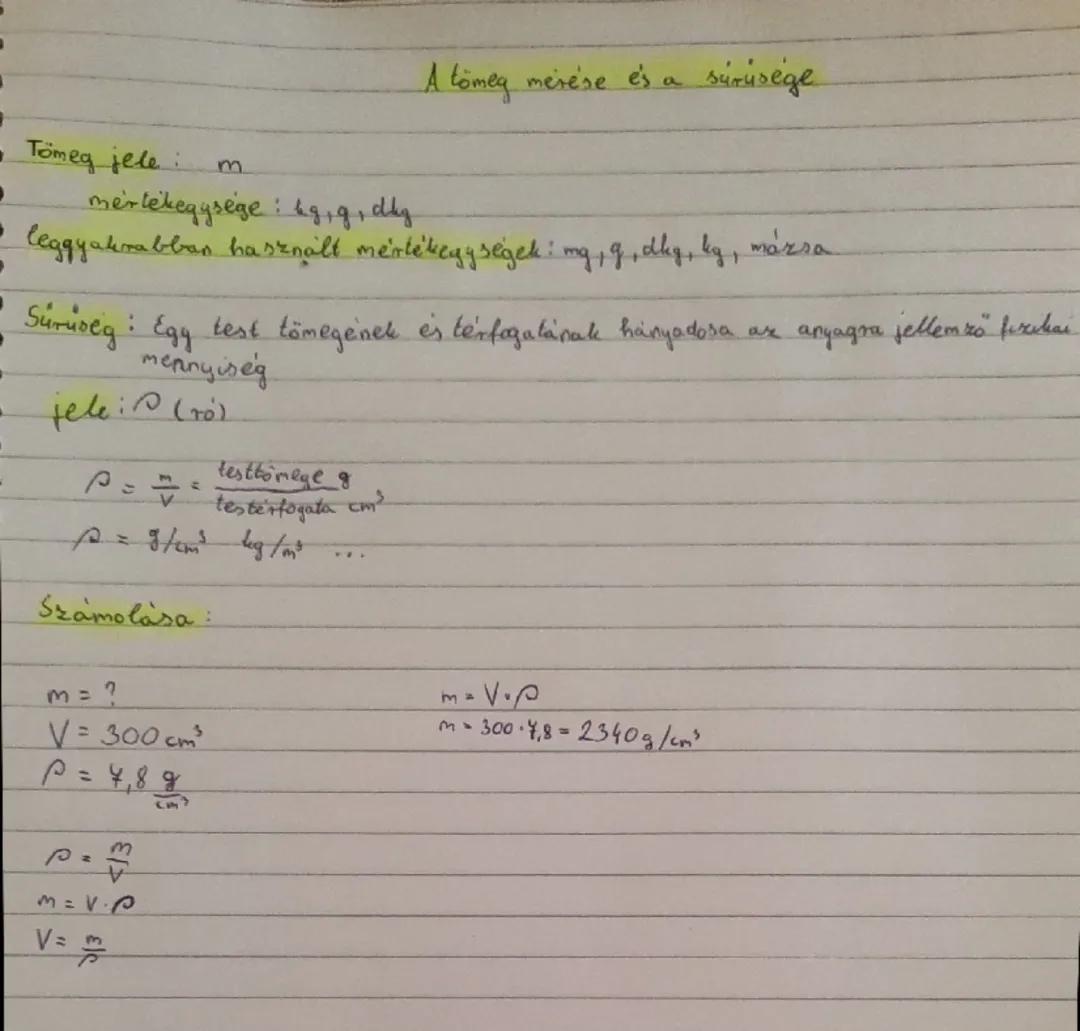 A tömeg mérése és a sűrűsége
Tömeg jele : m
mértékegysége : kg, g, dkg
leggyakrabban használt mértékegységek : mg, g, dkg, kg, mázsa
Sűrűség : Egy test tömegének és térfogatának hányadosa az anyagra jellemző fizikai
mennyiség
jele : ρ (ró)
ρ = m/V = testtömege g / testérfogata cm³
ρ = g/cm³ kg/m³ ...
Számolása :
m = ?
V = 300 cm³
ρ = 7,8 g/cm³
m = V · ρ
m = 300 · 7,8 = 2340 g/cm³
ρ = m/V
m = V · ρ
V = m/ρ